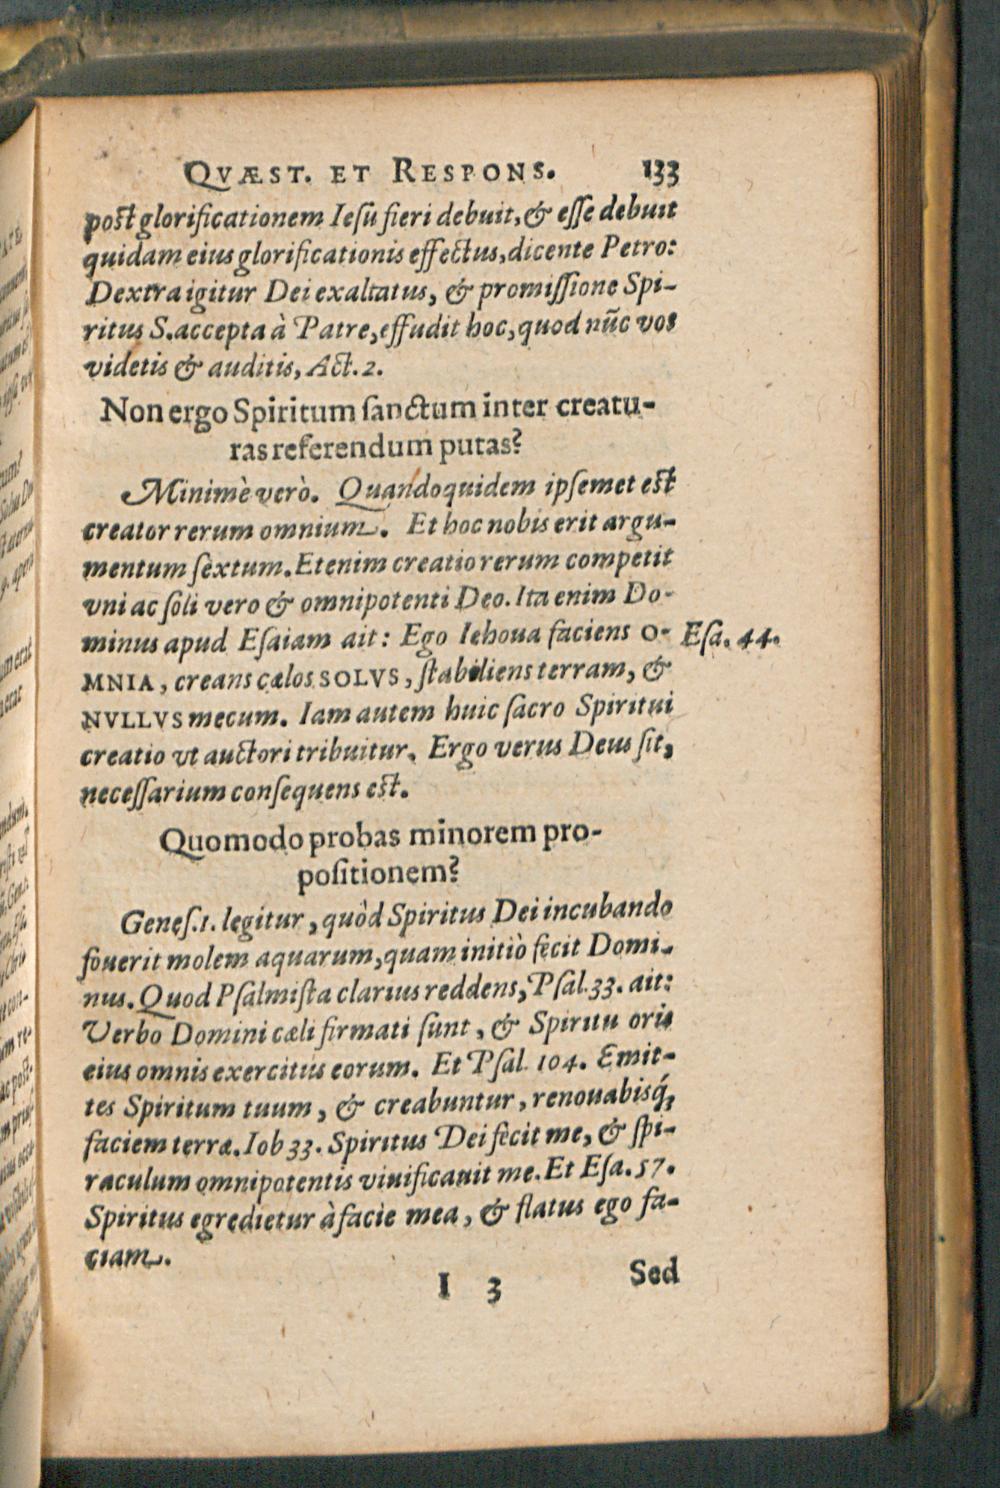 QVÆST. ET RESPONS. 133
post glorificationem Iesu fieri debuit, & esse debuit
quidam eius glorificationis effectus, dicente Petro:
Dextra igitur Dei exaltatus, & promissione Spi-
ritus S. accepta à Patre, effudit hoc, quod nūc vos
videtis & auditis, Act. 2.
Non ergo Spiritum sanctum inter creatu-
ras referendum putas?
Minimè verò. Quandoquidem ipsemet est
creator rerum omnium. Et hoc nobis erit argu-
mentum sextum. Etenim creatio rerum competit
vni ac soli vero & omnipotenti Deo. Ita enim Do-
minus apud Esaiam ait: Ego Iehoua faciens O- Esa. 44.
MNIA, creans cælos SOLVS, stabiliens terram, &
NVLLVS mecum. Iam autem huic sacro Spiritui
creatio vt auctori tribuitur. Ergo verus Deus sit,
necessarium consequens est.
Quomodo probas minorem pro-
positionem?
Genes. 1. legitur, quòd Spiritus Dei incubando
fouerit molem aquarum, quam initiò fecit Domi-
nus. Quod Psalmista clarius reddens, Psal. 33. ait:
Verbo Domini cæli firmati sunt, & Spiritu oris
eius omnis exercitus eorum. Et Psal. 104. Emit-
tes Spiritum tuum, & creabuntur, renouabisq́;
faciem terræ. Iob 33. Spiritus Dei fecit me, & spi-
raculum omnipotentis viuificauit me. Et Esa. 57.
Spiritus egredietur à facie mea, & flatus ego fa-
ciam.
I 3 Sed